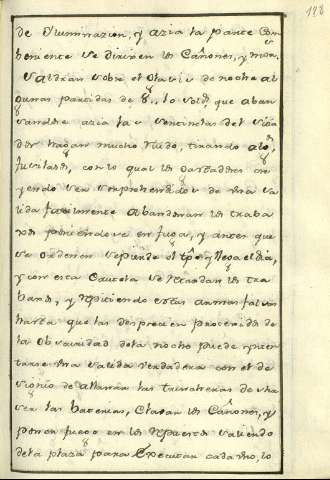 118
de Yluminazion, y azia la parte Con
beniente se dirixen los Cañones, y mon
Saldran sobre el Glavis de noche al
gunas partidas de 8 los sold.s que aban
zandose azia las Centinelas del sitia
dor hagan mucho ruido, tirando al
fusilazos, con lo qual los Gastadores cre
yendo ser comprehendidos de una sa
lida facilmente abandonan los traba
xos poniendose en fuga, y antes que
se ordenen se pierde el tpo y llega el dia,
y con esta Cautela se retardan los tra
bajos, y repitiendo estas armas falsas
hasta que las desprecien procerido de
la obscuridad dela noche puede yten
tarse una salida verdadera con el de
signio de allanar las trincheras de
ver las baterias, Clavar los Cañones, y
poner fuego en los repuestos saliendo
dela plaza para Executar cada uno, lo